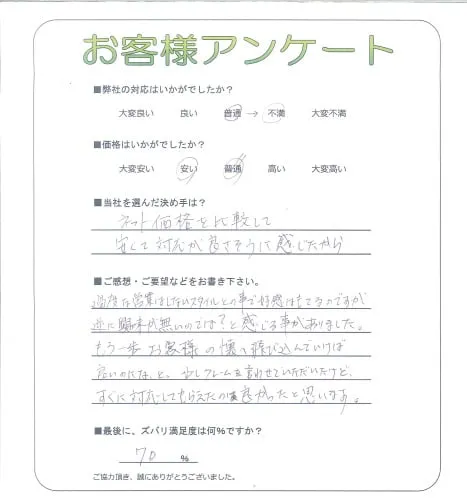 お客様アンケート
■弊社の対応はいかがでしたか？
大変良い 良い 普通 → 不満 大変不満
■価格はいかがでしたか？
大変安い 安い 普通 高い 大変高い
■当社を選んだ決め手は？
ネット価格を比較して
安くて対応が良さそうに感じたから
■ご感想・ご要望などをお書き下さい。
過度な営業はしないスタイルとの事で好感はもてるのですが
逆に興味が無いのでは？と感じる事がありました。
もう一歩お客様の懐へ飛び込んでいけば
良いのになぁ、と、少しクレームを言わせていただいたけど、
すぐに対応してもらえたの良かったと思います。
■最後に、ズバリ満足度は何%ですか？
70 %
ご協力頂き、誠にありがとうございました。